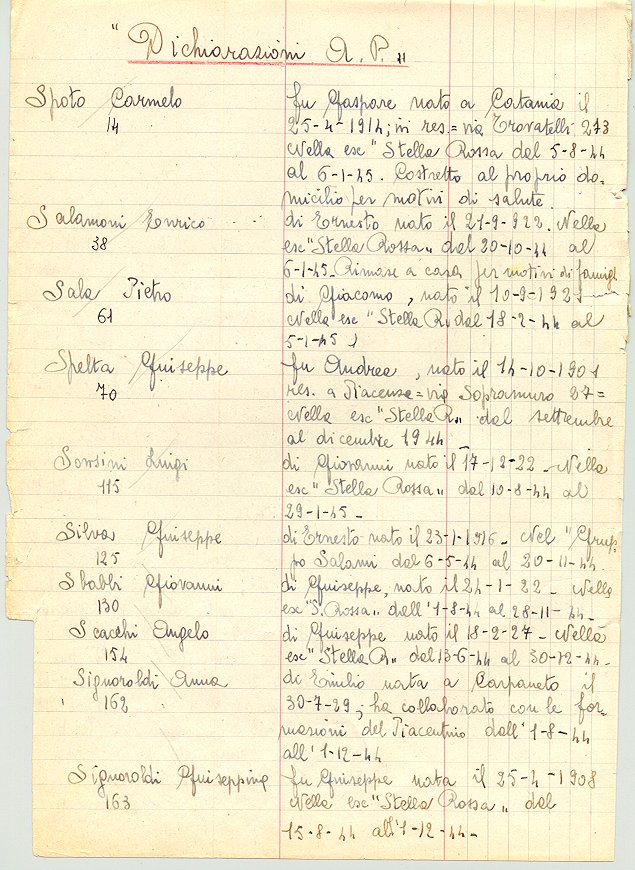 " Dichiarazioni A. P. "
Spoto Carmelo
14
fu Gaspare nato a Catania il
25-4-1914; ivi res.= via Trovatelli 273
Nella esc "Stella Rossa dal 5-8-44
al 6-1-45. Costretto al proprio do-
micilio per motivi di salute.
Salamoni Enrico
38
di Ernesto nato il 21-9-922. Nella
esc "Stella Rossa" dal 20-10-44 al
6-1-45_Rimase a casa per motivi di famigl
Sala Pietro
61
di Giacomo, nato il 10-9-192
Nella esc "Stella R. dal 18-2-44 al
5-1-45
Spelta Giuseppe
70
fu Andrea, nato il 14-10-1901
res. a Piacenza= via Sopramuro 37=
Nella esc "Stella R" dal settembre
al dicembre 1944_
Sonsini Luigi
115
di Giovanni nato il 17-12-22_Nella
esc "Stella Rossa" dal 10-8-44 al
29-1-45_
Silva Giuseppe
125
di Ernesto nato il 23-1-1916_Nel "Grup-
po Salami dal 6-5-44 al 20-11-44.
Sbabbi Giovanni
130
di Giuseppe, nato il 24-1-22_Nella
esc "S. Rossa" dall'1-8-44 al 28-11-44_
Scacchi Angelo
154
di Giuseppe nato il 18-2-27_Nella
esc "Stella R" dal 13-6-44 al 30-12-44_
Signoroldi Anna
162
di Emilio nata a Carpaneto il
30-7-29; ha collaborato con le for-
mazioni del Piacentino dall'1-8-44
all'1-12-44
Signoroldi Giuseppina
163
fu Giuseppe nata il 25-4-1908
Nella esc "Stella Rossa" dal
15-8-44 all'1-12-44_